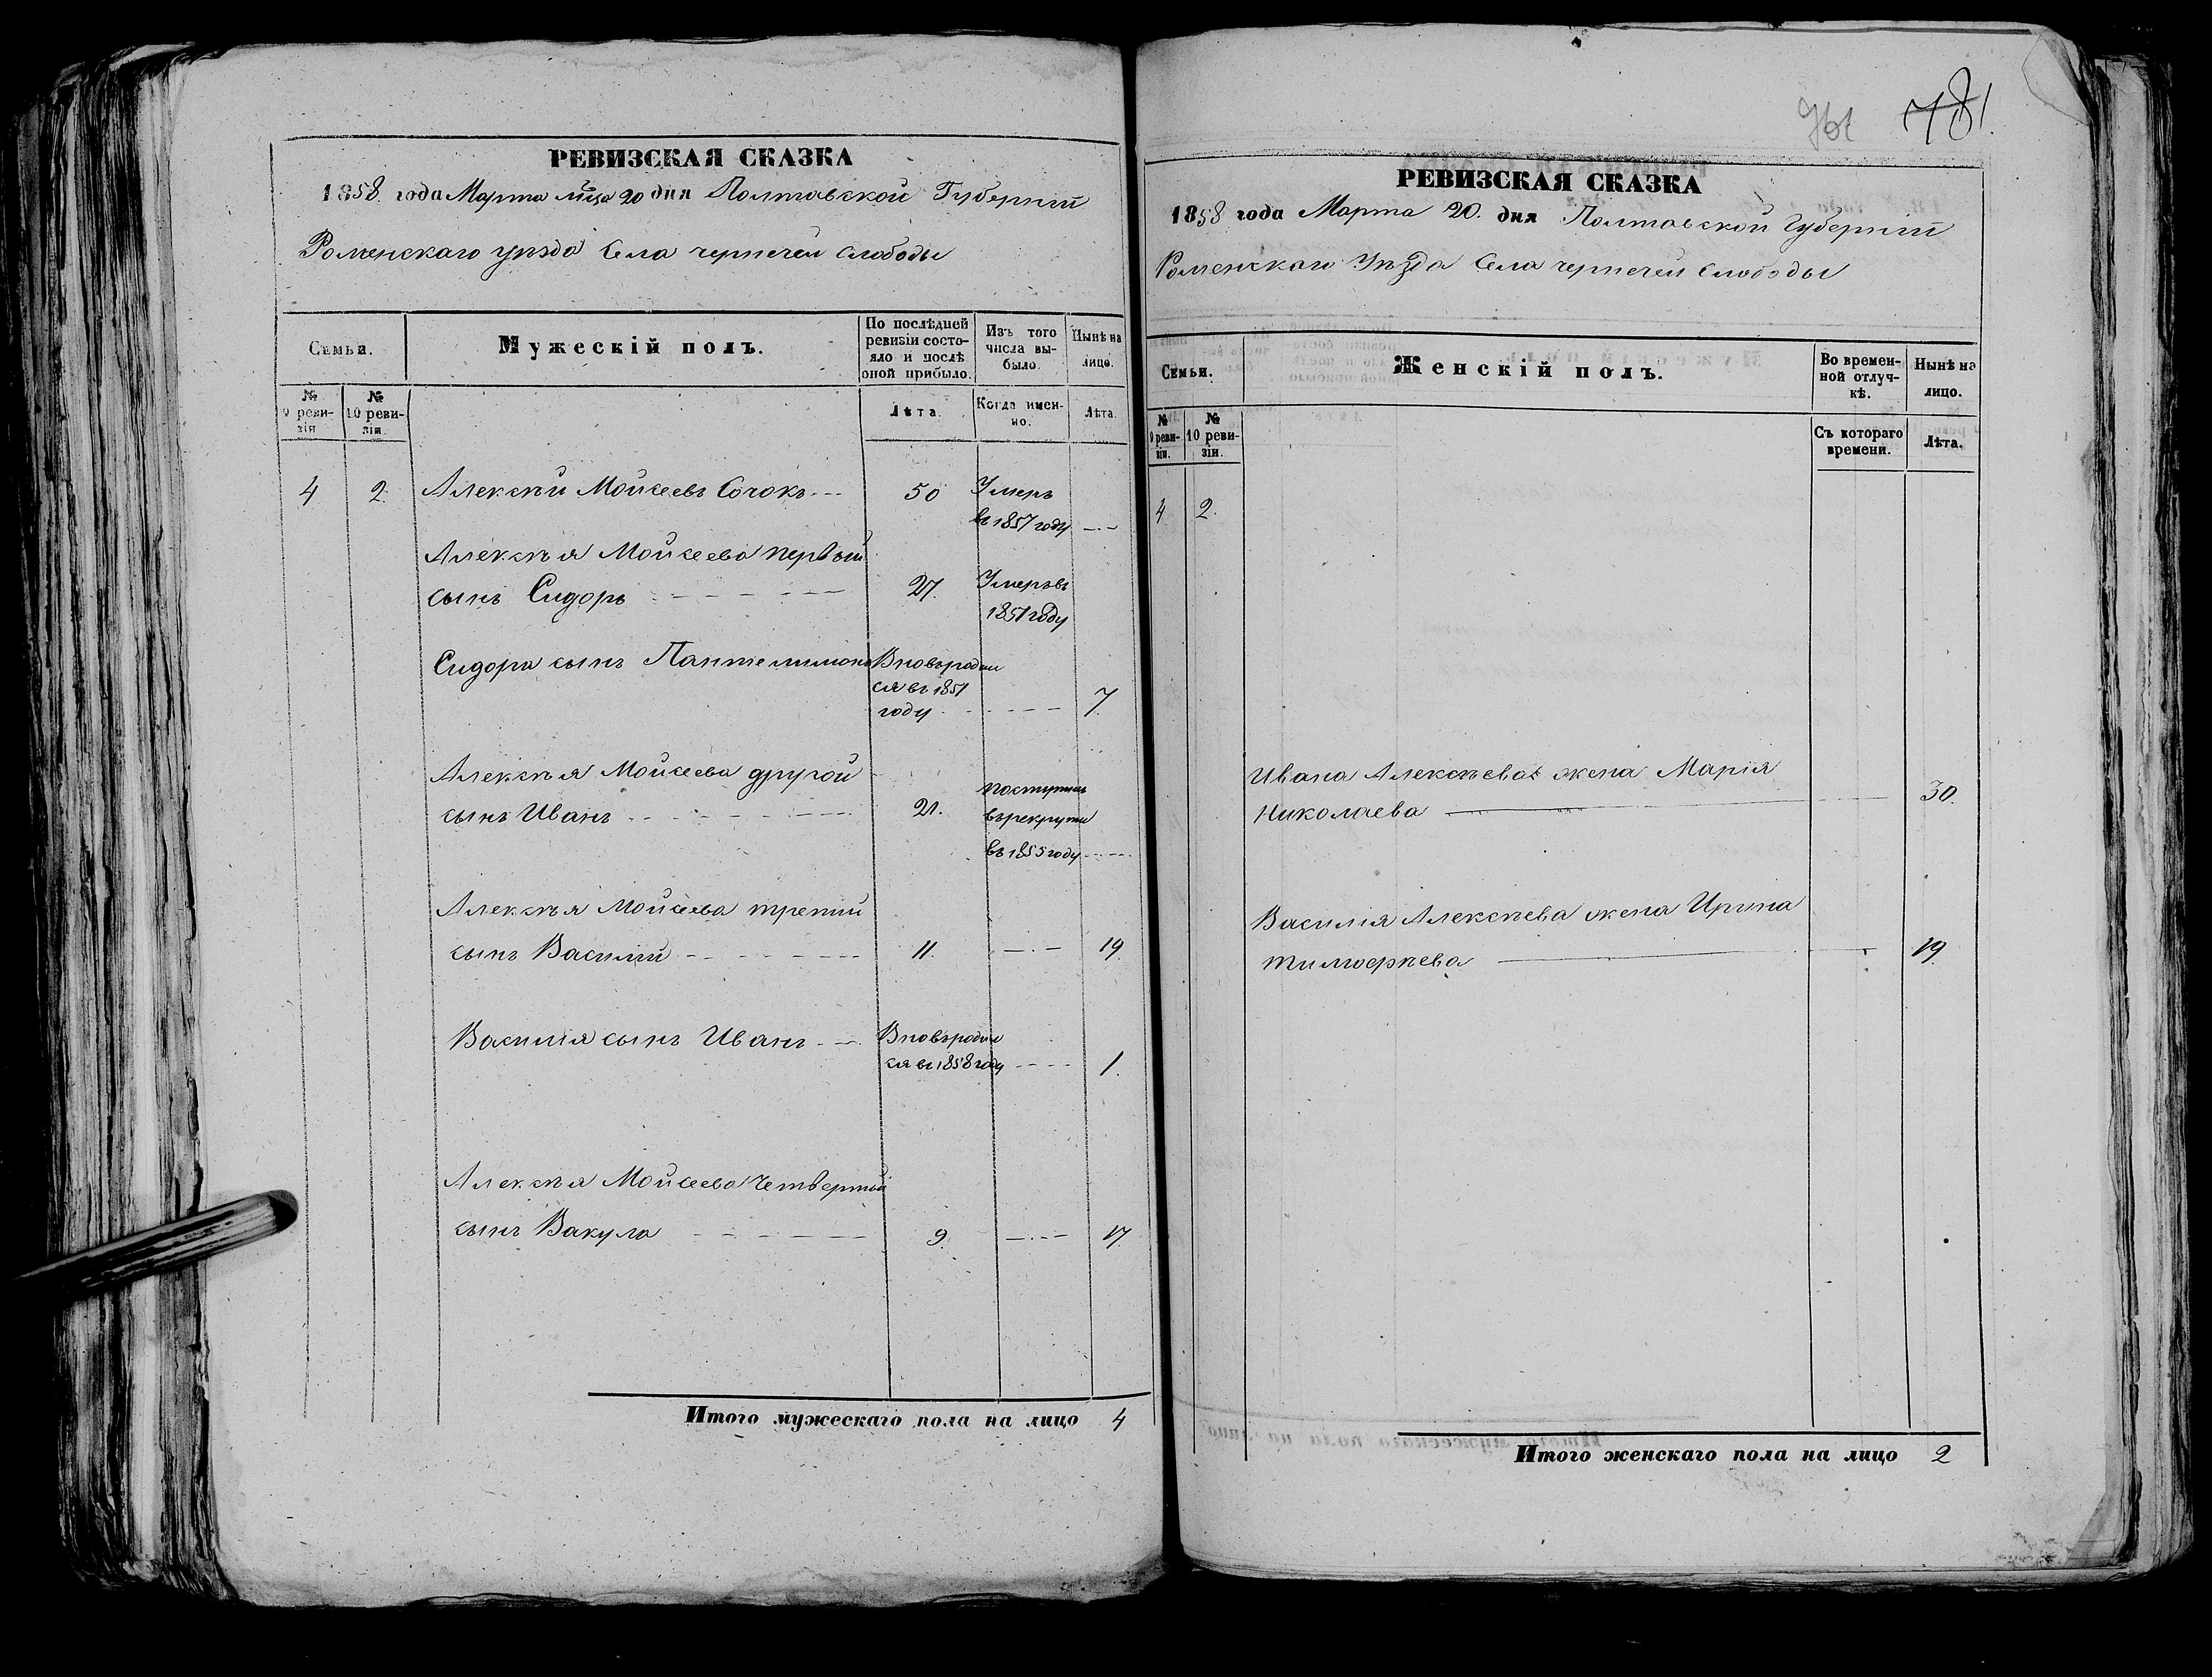 РЕВИЗСКАЯ СКАЗКА
1858. года Марта мѣсца 20 дня Полтавской Губерніи
Роменскаго уѣзда Села чернечей слободы
Семьи.
Мужескій полъ.
По послѣдней ревизіи состояло и послѣ оной прибыло.
Изъ того числа выбыло.
Нынѣ на лицо.
№ 9 ревизіи
№ 10 ревизіи.
Лѣта.
Когда именно.
Лѣта.
4 2. Алексѣй Мойсеевъ Сочокъ 50 Умеръ
въ 1857 году
Алексѣя Мойсеева первый
сынъ Сидоръ 27. Умеръ въ
1851 году
Сидора сынъ Пантелимонъ Вновьродил
ся въ 1851
году 7.
Алексѣя Мойсеева другой
поступилъ
сынъ Иванъ 21. въ рекруты
въ 1855 году
Алексѣя Мойсеева третий
сынъ Василий 11. 19.
Василія сынъ Иванъ Вновьродил
ся въ 1858 году 1.
Алексѣя Мойсеева Четвертый
сынъ Вакула 9. 17.
Итого мужескаго пола на лицо 4
781.
РЕВИЗСКАЯ СКАЗКА
1858 года Марта 20. дня Полтавской Губерніи
Роменскаго Уѣзда Села чернечей Слободы
Семьи.
Женскій полъ.
Во временной отлучкѣ.
Нынѣ на лицо.
№ 9 ревизіи.
№ 10 ревизіи.
Съ котораго времени.
Лѣта.
4 2.
Ивана Алексѣева жена Марія
Николаева 30.
Василія Алексѣева жена Ирина
Тимофѣева 19.
Итого женскаго пола на лицо 2